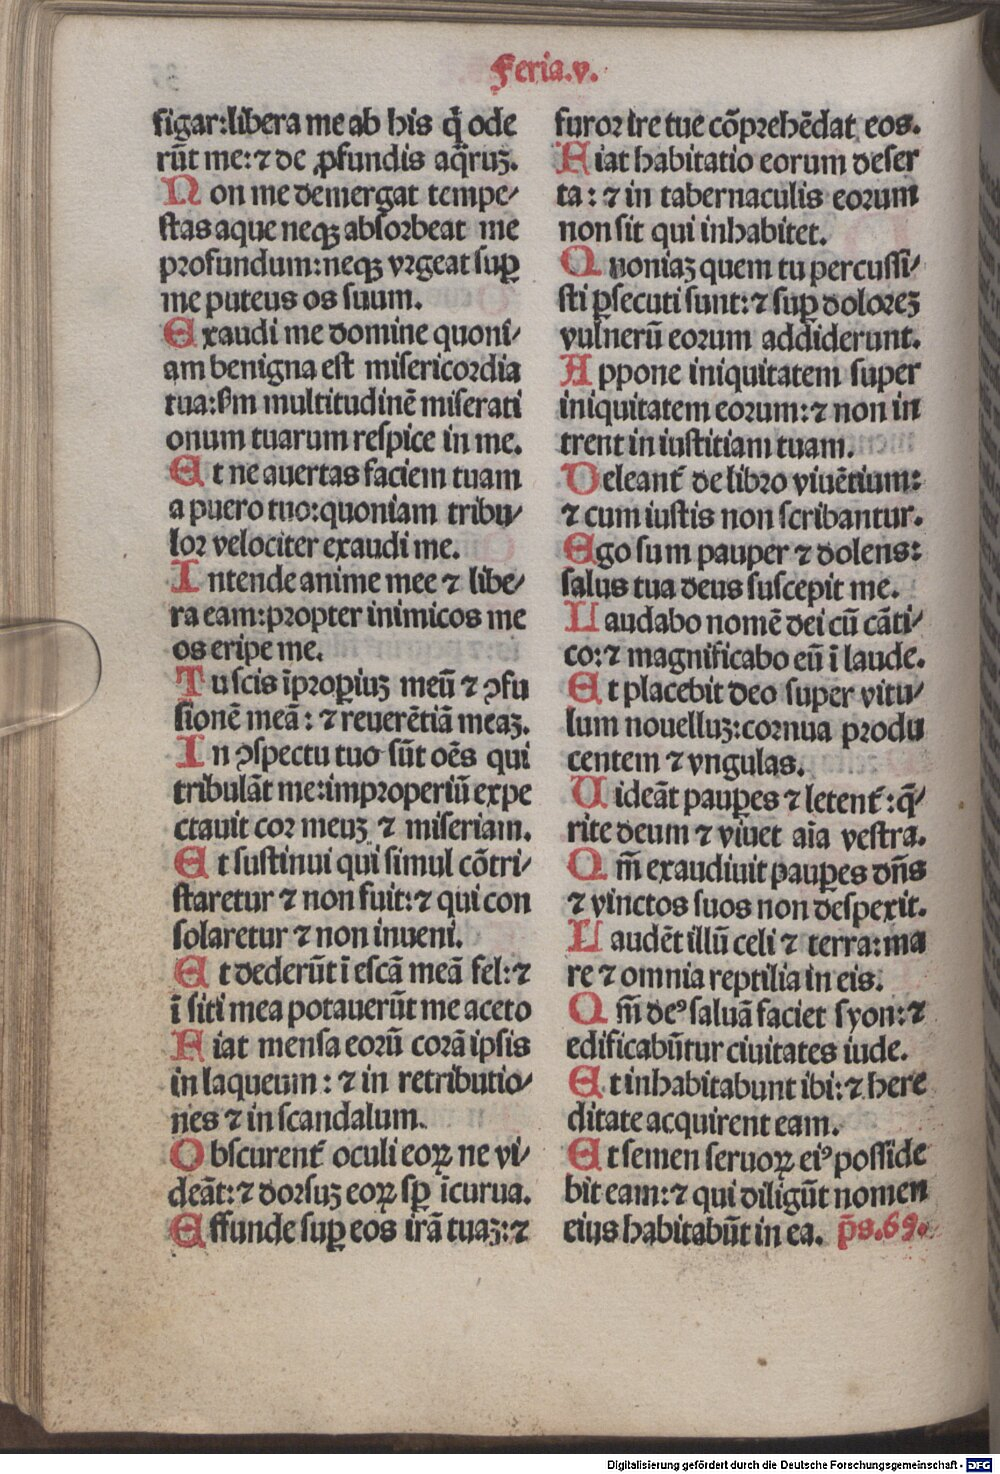 Feria.v.
sigar:libera me ab his q̄ ode
rūt me:⁊ de ꝓfundis aq̄ruꝫ.
Non me demergat tempe⸗
stas aque neqꝫ absorbeat me
profundum:neqꝫ vrgeat suꝑ
me puteus os suum.
Exaudi me domine quoni⸗
am benigna est misericordia
tua:ẜm multitudinē miserati
onum tuarum respice in me.
Et ne auertas faciem tuam
a puero tuo:quoniam tribu⸗
lor velociter exaudi me.
Intende anime mee ⁊ libe⸗
ra eam:propter inimicos me
os eripe me.
Tu scis īproꝑiuꝫ meū ⁊ ꝯfu
sionē meā: ⁊ reuerētiā meaꝫ.
In ꝯspectu tuo sūt oēs qui
tribulāt me:improperiū expe
ctauit cor meuꝫ ⁊ miseriam.
Et sustinui qui simul cōtri⸗
staretur ⁊ non fuit:⁊ qui con
solaretur ⁊ non inueni.
Et dederūt ī escā meā fel:⁊
ī siti mea potauerūt me aceto
Fiat mensa eorū corā ipsis
in laqueum: ⁊ in retributio⸗
nes ⁊ in scandalum.
Obscurent̄ oculi eoꝝ ne vi⸗
deāt:⁊ dorsuꝫ eoꝝ sꝑ īcurua.
Effunde suꝑ eos irā tuaꝫ:⁊
furor ire tue cōprehēdat eos.
Fiat habitatio eorum deser
ta: ⁊ in tabernaculis eorum
non sit qui inhabitet.
Quoniaꝫ quem tu percussi⸗
sti ꝑsecuti sunt:⁊ suꝑ doloreꝫ
vulnerū eorum addiderunt.
Appone iniquitatem super
iniquitatem eorum:⁊ non in
trent in iustitiam tuam.
Deleant̄ de libro viuētium:
⁊ cum iustis non scribantur.
Ego sum pauper ⁊ dolens:
salus tua deus suscepit me.
Laudabo nomē dei cū cāti⸗
co:⁊ magnificabo eū ī laude.
Et placebit deo super vitu⸗
lum nouelluꝫ:cornua produ
centem ⁊ vngulas.
Uideāt pauꝑes ⁊ letent̄:q̄⸗
rite deum ⁊ viuet aīa vestra.
Qm̄ exaudiuit pauꝑes dn̄s
⁊ vinctos suos non despexit.
Laudēt illū celi ⁊ terra:ma
re ⁊ omnia reptilia in eis.
Qm̄ deꝰ saluā faciet syon:⁊
edificabūtur ciuitates iude.
Et inhabitabunt ibi:⁊ here
ditate acquirent eam.
Et semen seruoꝝ eiꝰ posside
bit eam:⁊ qui diligūt nomen
eius habitabūt in ea. p̄s.69.
Digitalisierung gefördert durch die Deutsche Forschungsgemeinschaft - DFG